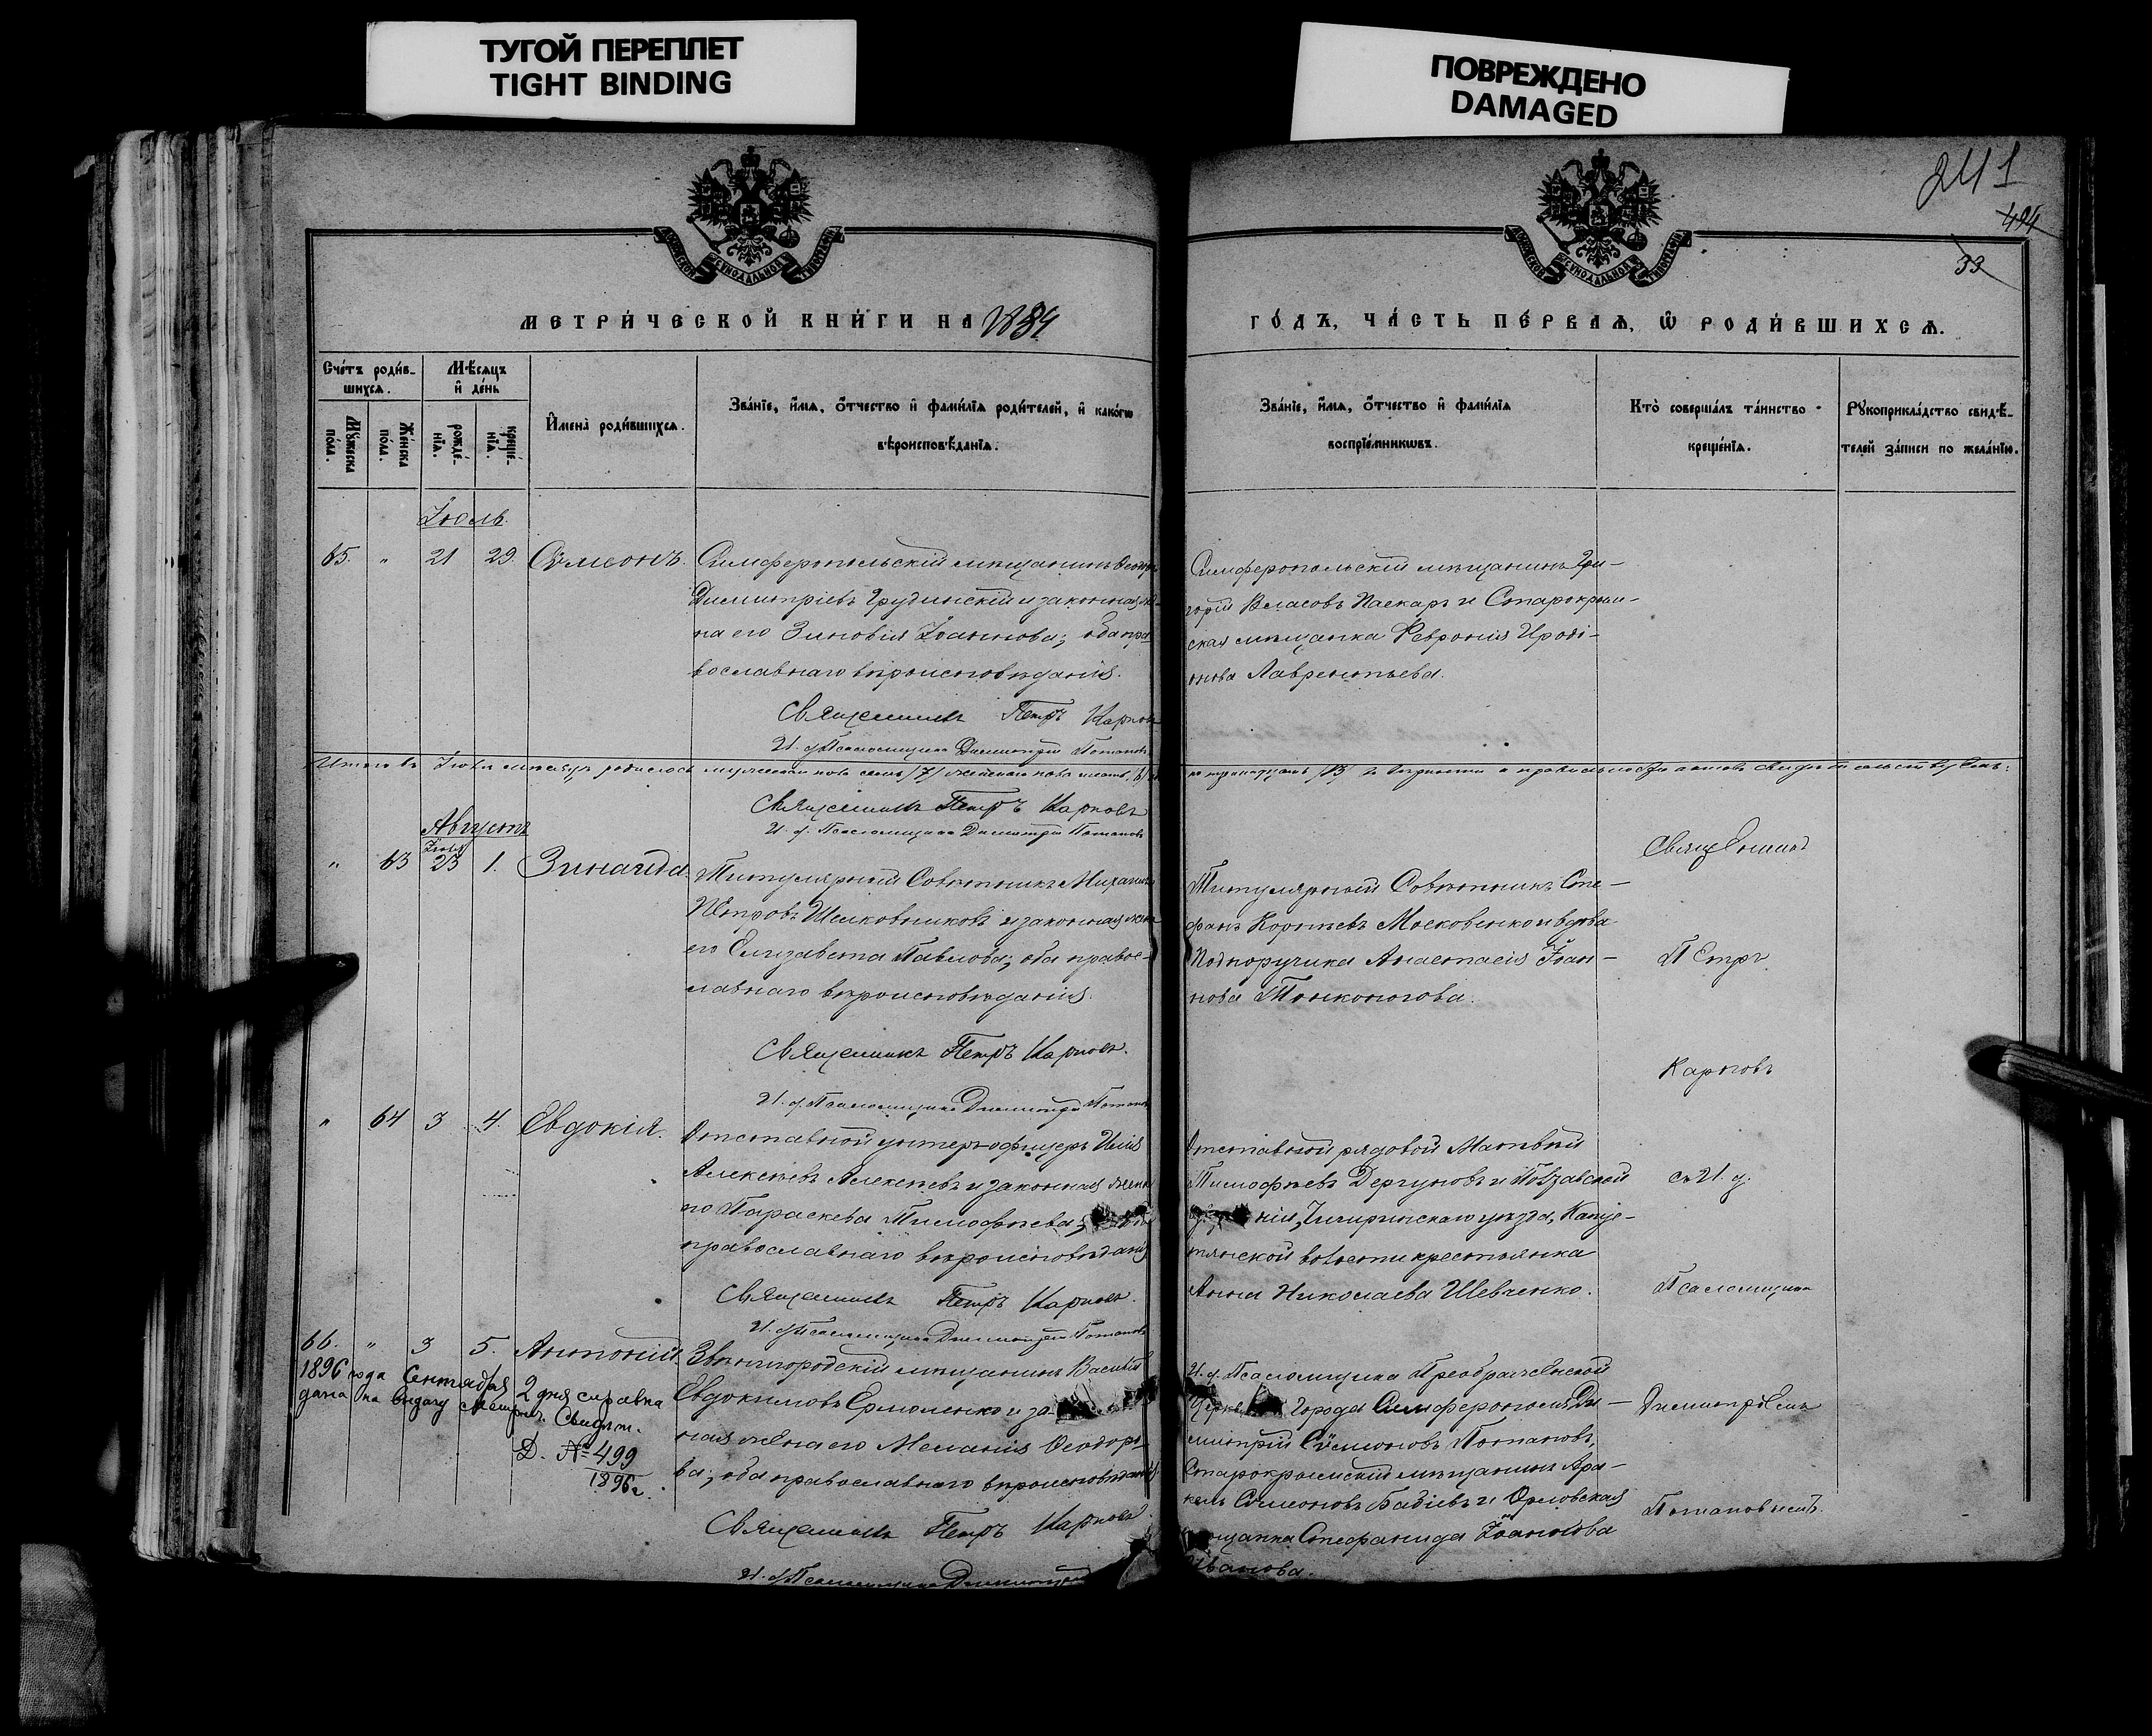 ТУГОЙ ПЕРЕПЛЕТ
TIGHT BINDING
ПОВРЕЖДЕНО
DAMAGED
241
494
33
МЕТРИ́ЧЕСКОЙ КНИ́ГИ НА 1884
ГО́ДЪ, ЧА́СТЬ ПЕ́РВАѦ, Ѽ РОДИ́ВШИХСѦ.
Сче́тъ роди́в-
шихсѧ.
Мѣ́сяцъ
и҆ де́нь
Мꙋ́жеска
по́ла.
Же́нска
по́ла.
рожде́-
нїѧ.
креще́-
нїѧ.
И҆мена̀ роди́вшихсѧ.
Зва́нїе, и҆́мѧ, ѻ҆́тчество и҆ фами́лїѧ роди́телей, и҆ како́гѡ
вѣроисповѣ́данїѧ.
Зва́нїе, и҆́мѧ, ѻ҆́тчество и҆ фами́лїѧ
воспрїе́мникѡвъ.
Кто̀ соверша́лъ та́инство
креще́нїѧ.
Рꙋкоприкла́дство свидѣ́-
телей за́писи по жела́нїю.
Іюль.
65. " 21 29. Сѵмеонъ.
Симферопольскій мѣщанинъ
Димитріевъ Грудинскій и законная же-
на его Зиновія Іоаннова; оба пра
вославнаго вѣроисповѣданія.
Священникъ Петръ Карповъ
И. д. Псаломщика Димитрій Потаповъ
Симферопольскій мѣщанинъ Гри-
горій Власовъ Паскаръ и Старокрым-
ская мѣщанка Феѵронія Иродi-
онова Лаврентьева.
Итого въ Іюлѣ мѣсяцѣ родилось мужескаго пола семь /7/ женскаго пола шесть /6/
тринадцать /13/
Священникъ Петръ Карповъ
И. д. Псаломщика Димитрій Потаповъ
Августъ
Іюля
" 63 23 1. Зинаида.
Титулярный Совѣтникъ Михаилъ
Петровъ Шелковниковъ и законная жена
его Елизавета Павлова; оба правос-
лавнаго вѣроисповѣданія.
Священникъ Петръ Карповъ.
И. д. Псаломщика Димитрій Потаповъ
Титулярный Совѣтникъ Сте-
фанъ Корнѣевъ Московенко и вдова
Подпоручика Анастасія Іоан-
нова Тонконогова.
Священникъ
Петръ
Карповъ
съ И. д.
Псаломщика
Димитріемъ
Потаповымъ.
" 64 3 4. Евдокія.
Отставной унтеръ-офицеръ Илія
Алексѣевъ Алексѣевъ и законная жена
го Параскева Тимофѣева;
православнаго вѣроисповѣданія
Священникъ Петръ Карповъ.
И. д. Псаломщика Димитрій Потаповъ
Отставной рядовой Матвѣй
Тимофѣевъ Дергуновъ и Полтавской
ніи, Чигиринскаго уѣзда,
волости крестьянка
Анна Николаева Шевченко.
66. " 3 5. Антоній.
1896 года Сентября 2 дня справка
дана на выдачу Метрич. Свидѣт.
Д. № 499
1896 г.
Звенигородскій мѣщанинъ Василій
Евдокимовъ Ермоленко и за
ная жена его Меланія Ѳеодоро-
ва; оба православнаго вѣроисповѣданія.
Священникъ Петръ Карповъ
И. д. Псаломщика Димитрій
И. д. Псаломщика Преображенской
Церкви города Симферополя Ди-
митрій Сѵмеоновъ Потаповъ,
Старокрымскій мѣщанинъ Ара-
келъ Сѵмеоновъ Бабіевъ и Орловская
мѣщанка Стефанида Іоаннова
Иванова.